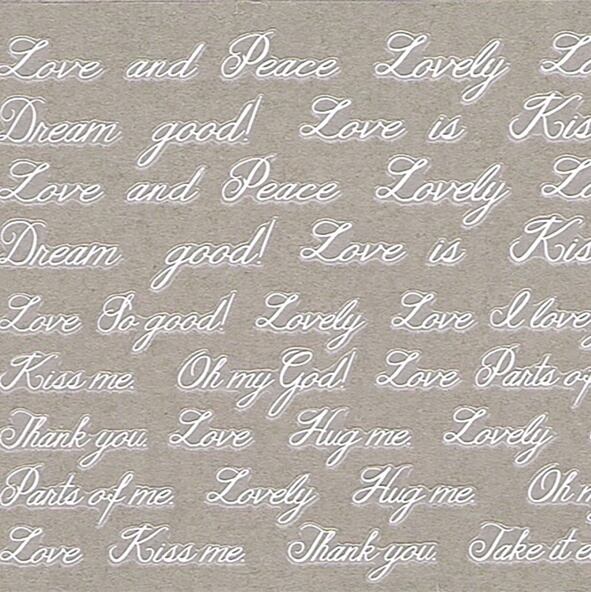 Love and Peace Lovely Lo
Dream good! Love is Kis
Love and Peace Lovely Lo
Dream good! Love is Kis
Love So good! Lovely Love I love y
Kiss me. Oh my God! Love Parts of
Thank you. Love Hug me. Lovely
Parts of me. Lovely Hug me. Oh m
Love Kiss me. Thank you. Take it e